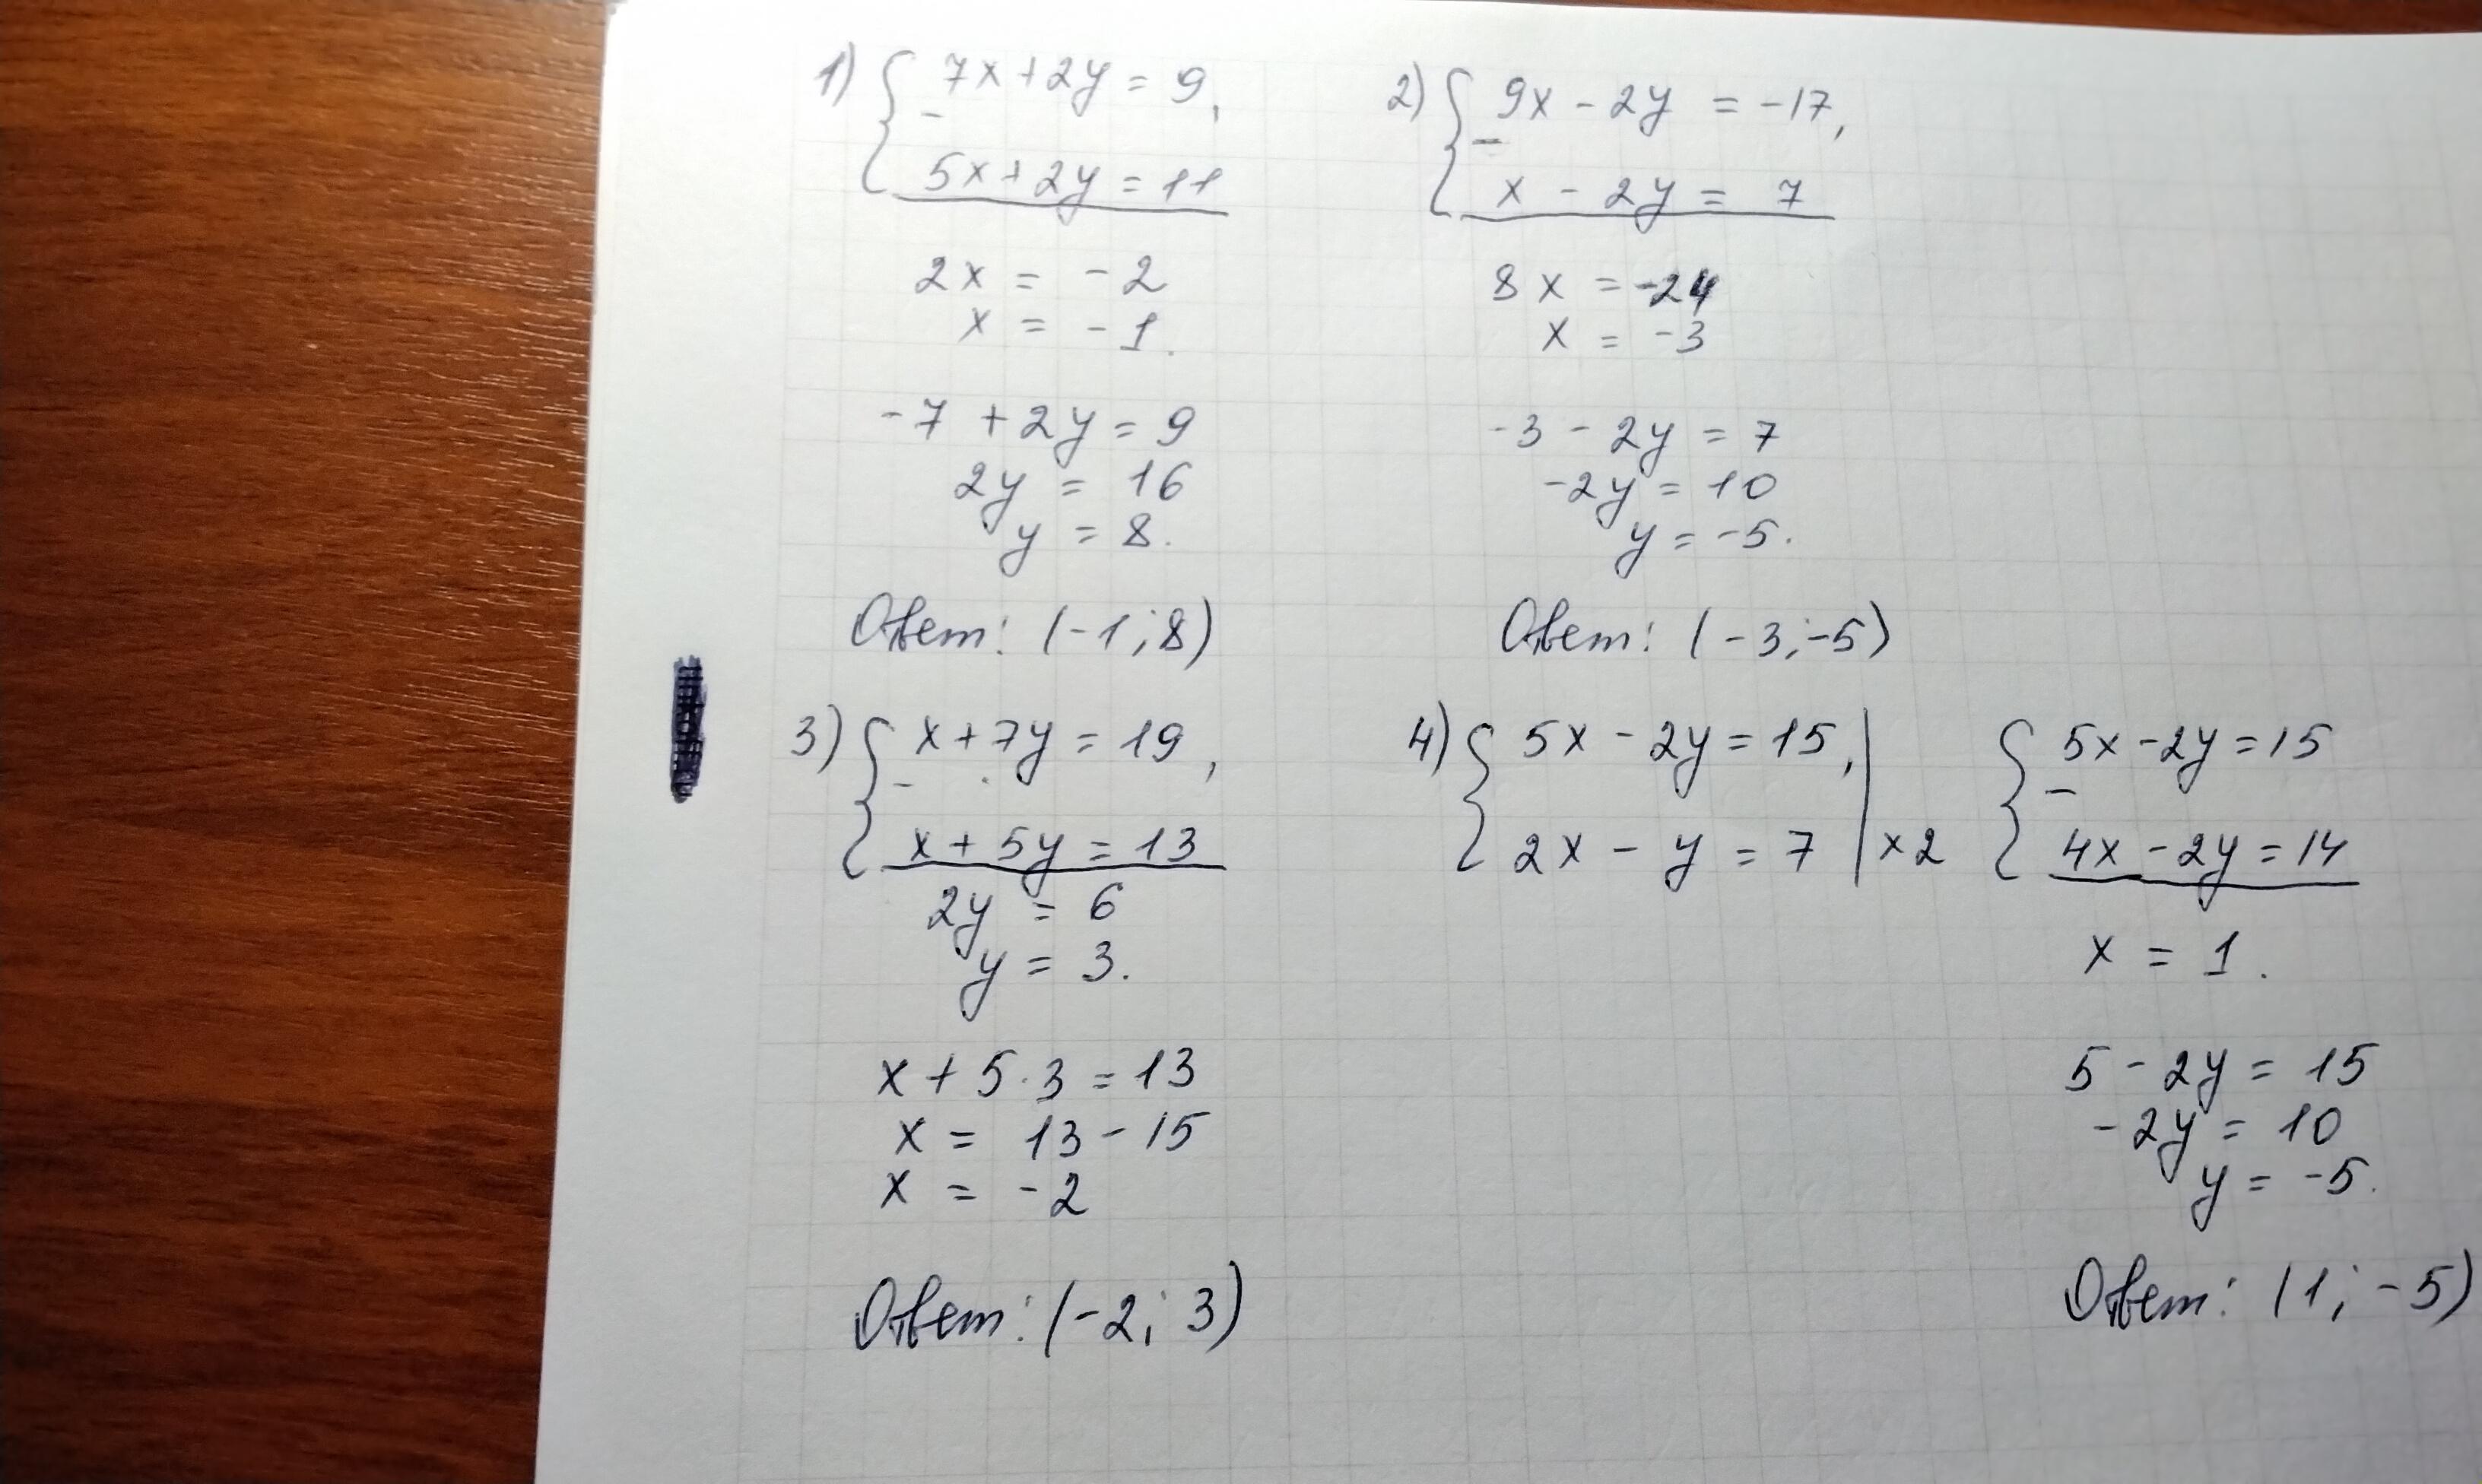 1) { 7x + 2y = 9,
−
5x + 2y = 11
2x = -2
x = -1.
-7 + 2y = 9
2y = 16
y = 8.
Ответ: (-1; 8)
2) { 9x - 2y = -17,
−
x - 2y = 7
8x = -24
x = -3
-3 - 2y = 7
-2y = 10
y = -5.
Ответ: (-3; -5)
3) { x + 7y = 19,
−
x + 5y = 13
2y = 6
y = 3.
x + 5·3 = 13
x = 13 - 15
x = -2
Ответ: (-2; 3)
4) { 5x - 2y = 15, |
2x - y = 7 | ×2
{ 5x - 2y = 15
−
4x - 2y = 14
x = 1.
5 - 2y = 15
-2y = 10
y = -5.
Ответ: (1; -5)